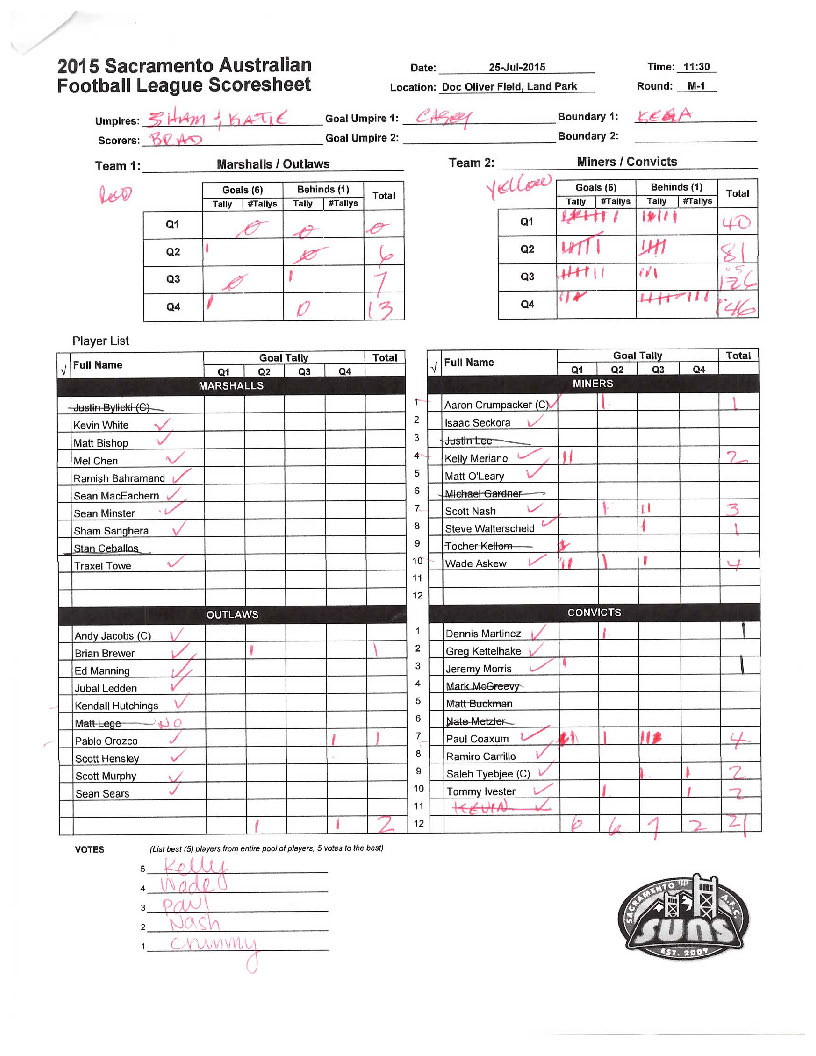 2015 Sacramento Australian
Football League Scoresheet
Date: 25-Jul-2015 Time: 11:30
Location: Doc Oliver Field, Land Park Round: M-1
Umpires: SHAM + KATIE Goal Umpire 1: CASEY Boundary 1: KEGA
Scorers: BRAD Goal Umpire 2: Boundary 2:
Team 1: Marshalls / Outlaws Team 2: Miners / Convicts
Red Yellow
Goals (6) Behinds (1) Total Goals (6) Behinds (1) Total
Tally #Tallys Tally #Tallys Tally #Tallys Tally #Tallys
Q1 0 0 0 Q1 40
Q2 0 6 Q2 81
Q3 0 7 Q3 126
Q4 0 13 Q4 146
Player List
√ Full Name Goal Tally Total √ Full Name Goal Tally Total
Q1 Q2 Q3 Q4 Q1 Q2 Q3 Q4
MARSHALLS MINERS
Justin Bylicki (C) 1 Aaron Crumpacker (C) 1
Kevin White 2 Isaac Seckora
Matt Bishop 3 Justin Lee
Mel Chen 4 Kelly Meriano 2
Ramish Bahramand 5 Matt O'Leary
Sean MacEachern 6 Michael Gardner
Sean Minster 7 Scott Nash 3
Sham Sanghera 8 Steve Walterscheid 1
Stan Ceballos 9 Tocher Kellom
Traxel Towe 10 Wade Askew 4
11
12
OUTLAWS CONVICTS
Andy Jacobs (C) 1 Dennis Martinez 1
Brian Brewer 1 2 Greg Kettelhake
Ed Manning 3 Jeremy Morris 1
Jubal Ledden 4 Mark McGreevy
Kendall Hutchings 5 Matt Buckman
Matt Lege NO 6 Nate Metzler
Pablo Orozco 1 7 Paul Coaxum 4
Scott Hensley 8 Ramiro Carrillo
Scott Murphy 9 Saleh Tyebjee (C) 2
Sean Sears 10 Tommy Ivester 2
11 KEVIN
1 1 2 12 6 6 7 2 21
VOTES (List best (5) players from entire pool of players, 5 votes to the best)
5 Kelly
4 Wade
3 Paul
2 Nash
1 Crummy
SACRAMENTO A.F.C.
SUNS
EST. 2007